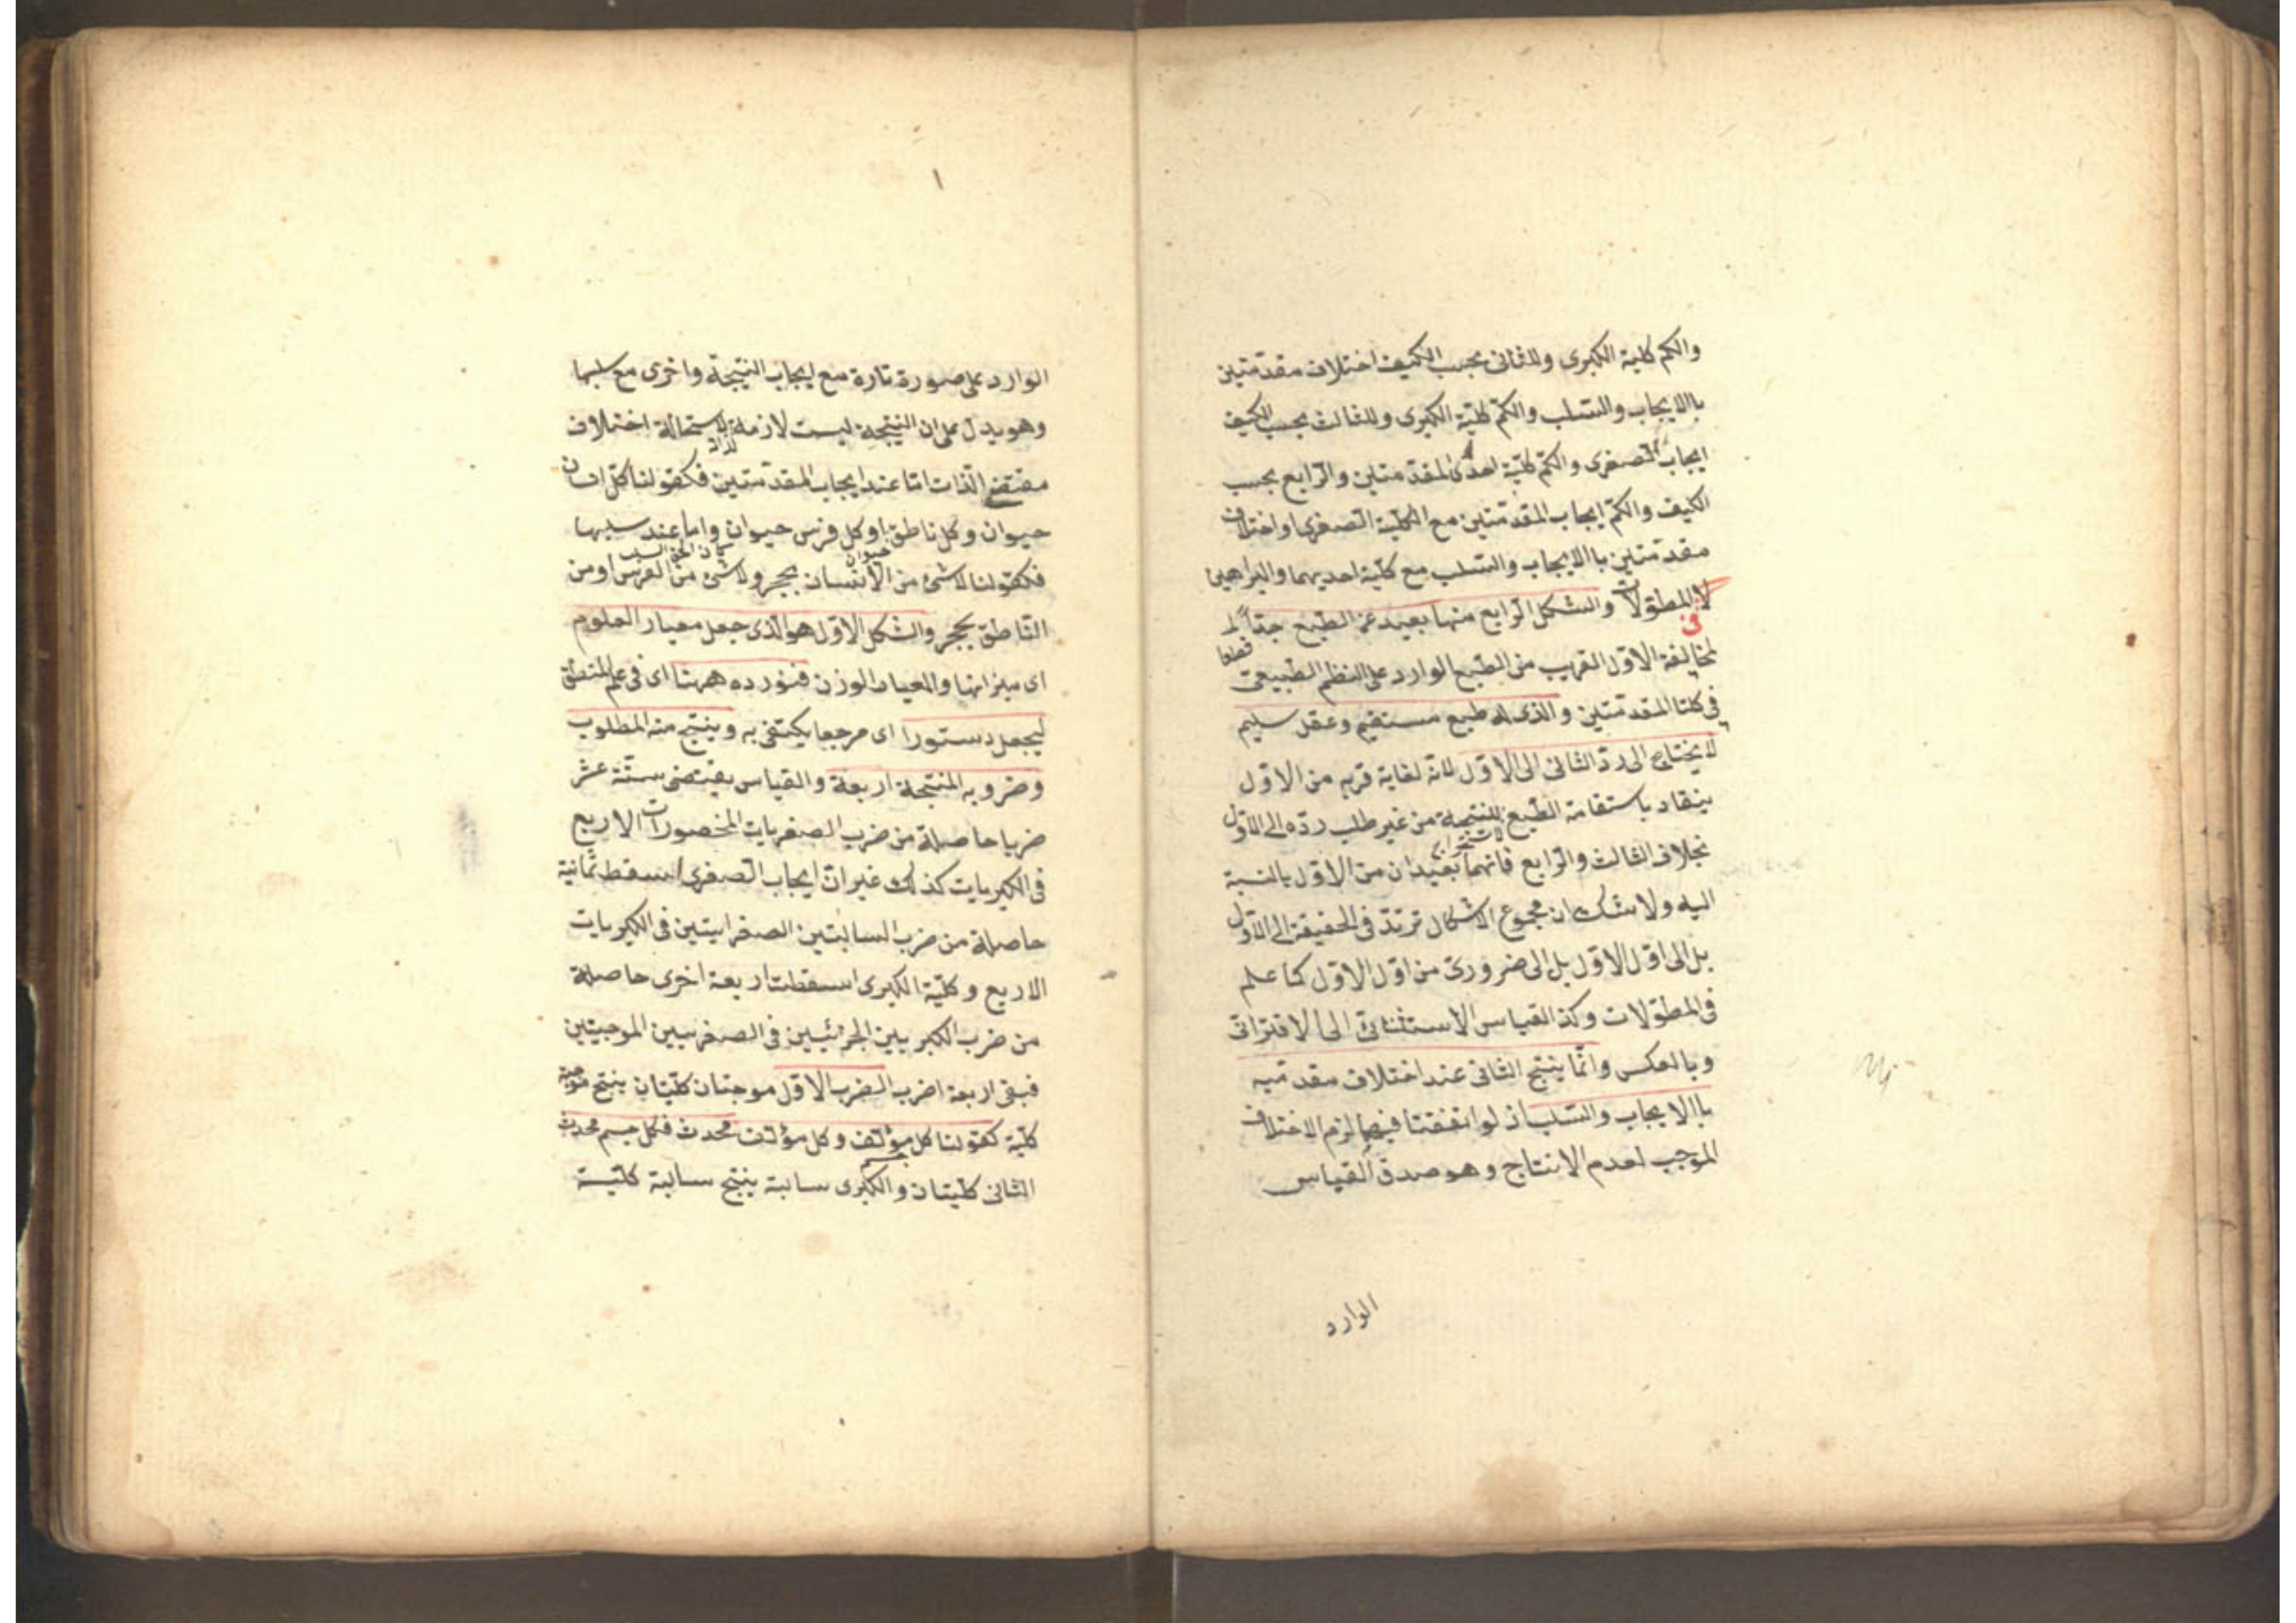 والكم كلية الكبرى وللثانى بحسب الكيف اختلاف مقدمتين
باالايجاب والسّلب والكمّ كليّة الكبرى وللثالث بحسب الكيف
ايجاب الصغرى والكمّ كليّة احدى المقدّمتين والرّابع بحسب
الكيف والكمّ ايجاب المقدّمتين مع الكلية الصغرى او اختلاف
مقدّمتين باالايجاب والسّلب مع كليّة احديهما والبراهين
فى المطوّلات والشكل الرّابع منها بعيد عن الطبع جدّاً
لمخالفة الاوّل القريب من الطبع الوارد على النظم الطبيعىّ قطعا
فى كلتا المقدّمتين والذى له طبع مستقيم وعقل سليم
لا يحتاج الى ردّ الثانى الى الاوّل لانّه لغاية قربه من الاوّل
ينقاد باستقامة الطبع للنتيجة من غير طلب ردّه الى الاوّل
بخلاف الثالث والرّابع فانهما بعيدان من الاوّل بالنسبة
اليه ولا شك ان مجموع الاشكال ترتدّ فى الحقيقة الى الاوّل
بل الى اوّل الاوّل بل الى ضرورىّ من اوّل الاوّل كما علم
فى المطوّلات وكذا القياس الاستثنائىّ الى الاقترانىّ
وبالعكس وانّما ينتج الثانى عند اختلاف مقدّمتيه
باالايجاب والسّلب اذ لو اتفقتا فيهما لزم الاختلاف
الموجب لعدم الانتاج وهو صدق القياس
الوارد
الوارد على صورة تارة مع ايجاب النتيجة واخرى مع سلبها
وهو يدلّ على ان النتيجة ليست لازمة لذاته لاستحالة اختلاف
مقتضى الذّات امّا عند ايجاب المقدّمتين فكقولنا كلّ انسان
حيوان وكل ناطق او كل فرس حيوان واما عند سلبها
فكقولنا لا شئ من الانسان بحجر ولا شئ من الفرس او من
النّاطق بحجر والشكل الاوّل هو الذى جعل معيار العلوم
اى ميزانها والمعيار الوزن فنورده ههنا اى فى علم المنطق
ليجعل دستورا اى مرجعا يكتفى به وينتج منه المطلوب
وضروبه المنتجة اربعة والقياس يقتضى ستّة عشر
ضربا حاصلة من ضرب الصغريات المحصورات الاربع
فى الكبريات كذلك غير انّ ايجاب الصغرى اسقط ثمانية
حاصلة من ضرب السالبتين الصغرايتين فى الكبريات
الاربع وكليّة الكبرى اسقطت اربعة اخرى حاصلة
من ضرب الكبريين الجزئيين فى الصغريين الموجبتين
فبقى اربعة اضرب الضرب الاوّل موجبتان كليّتان ينتج موجبة
كليّة كقولنا كل جسم مؤلّف وكل مؤلّف محدث فكل جسم محدث
الثانى كليّتان والكبرى سالبة ينتج سالبة كليّة